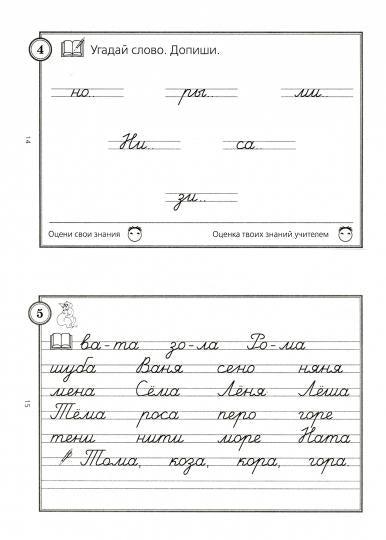 4 Угадай слово. Допиши.
но.. ры.. ми..
Ни.. са..
зи..
Оцени свои знания Оценка твоих знаний учителем
14
5
ва-та зо-ла Ро-ма
шуба Ваня сено няня
мена Сёма Лёня Лёша
Тёма роса перо горе
тени нити море Ната
Тома, коза, кора, гора.
15